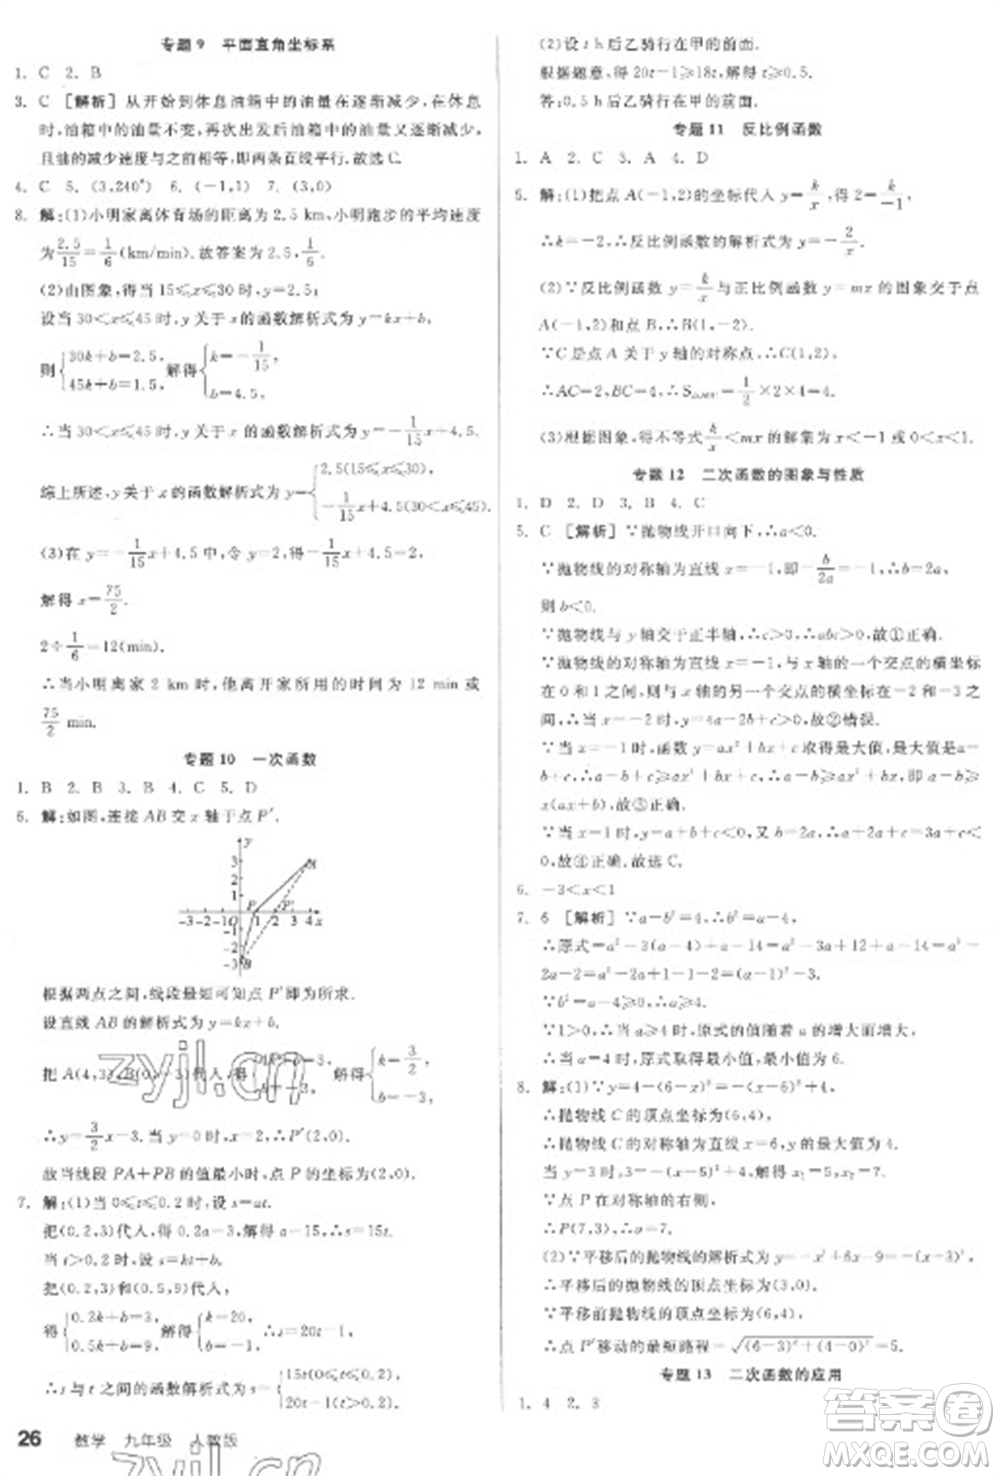 专题 9　平面直角坐标系
1. C　2. B
3. C【解析】从开始到休息油箱中的油量在逐渐减少,在休息
时,油箱中的油量不变,再次出发后油箱中的油量逐渐减少,
且油的减少速度与之前相等,即两条直线平行,故选C.
4. C　5. (3,240°)　6. (-1,1)　7. (3,0)
8. 解:(1)小明家离体育场的距离为 2.5 km,小明跑步的平均速度
为2.5/15=1/6(km/min).故答案为2.5,1/6.
(2)由图象,当15≤x≤30时,y=2.5;
设当30<x≤45时,y关于x的函数解析式为y=kx+b.
则{30k+b=2.5, 45k+b=1.5, 解得{k=-1/15, b=4.5,
∴当30<x≤45时,y关于x的函数解析式为y=-1/15x+4.5.
综上所述,y关于x的函数解析式为y={2.5(15≤x≤30), -1/15x+4.5(30<x≤45).
(3)在y=-1/15x+4.5中,令y=2,得-1/15x+4.5=2,
解得x=75/2.
2÷1/6=12(min).
∴当小明离家2 km时,他离开家所用的时间为12 min或
75/2 min.
专题 10　一次函数
1. B　2. B　3. B　4. C　5. D
6. 解:如图,连接AB交x轴于点P′.
y
3
2
1
-3 -2 -1 O 1 2 3 4 x
P P′
-1
-2
-3 B
根据两点之间,线段最短可知点P′即为所求.
设直线AB的解析式为y=kx+b.
∴y=3/2x-3.当y=0时,x=2,∴P′(2,0).
故当线段PA+PB的值最小时,点P的坐标为(2,0).
7. 解:(1)当0≤t≤0.2时,设s=at.
把(0.2,3)代入,得0.2a=3,解得a=15,∴s=15t.
当t>0.2时,设s=kt+b.
把(0.2,3)和(0.5,9)代入,
得{0.2k+b=3, 0.5k+b=9, 解得{k=20, b=-1. ∴s=20t-1.
∴s与t之间的函数解析式为s={15t(0≤t≤0.2), 20t-1(t>0.2).
(2)设t h后乙骑行在甲的前面.
根据题意,得20t-1≥18t,解得t≥0.5.
答:0.5 h后乙骑行在甲的前面.
专题 11　反比例函数
1. A　2. C　3. A　4. D
5. 解:(1)把点A(-1,2)的坐标代入y=k/x,得2=k/-1,
∴k=-2.∴反比例函数的解析式为y=-2/x.
(2)∵反比例函数y=k/x与正比例函数y=mx的图象交于点
A(-1,2)和点B,∴B(1,-2).
∵C是点A关于y轴的对称点,∴C(1,2).
∴AC=2,BC=4,∴S△ABC=1/2×2×4=4.
(3)根据图象,得不等式k/x<mx的解集为x<-1或0<x<1.
专题 12　二次函数的图象与性质
1. D　2. D　3. B　4. C
5. C【解析】∵抛物线开口向下,∴a<0.
则b<0.
∵抛物线与y轴交于正半轴,∴c>0,∴abc>0,故①正确.
∵抛物线的对称轴为直线x=-1,且与x轴的一个交点的横坐标
在0和1之间,则与x轴的另一个交点的横坐标在-2和-3之
6. -3<x<1
7. 6【解析】∵a-b²=4,∴b²=a-4,
∴原式=a²-3(a-4)+a-14=a²-3a+12+a-14=
a²-2a-2=a²-2a+1-1-2=(a-1)²-3.
∵b²=a-4≥0,∴a≥4.
∵1>0,∴当a≥4时,原式的值随着a的增大而增大,
∴当a=4时,原式取得最小值,最小值为6.
8. 解:(1)∵y=4-(6-x)²=-(x-6)²+4,
∴抛物线C的顶点坐标为(6,4),
∴抛物线C的对称轴为直线x=6,y的最大值为4.
∵点P在对称轴的右侧,
∴P(7,3).
(2)∵平移后的抛物线的解析式为y=-x²+6x-9=-(x-3)²,
∴平移后的抛物线的顶点坐标为(3,0),
∵平移前抛物线的顶点坐标为(6,4),
∴点P′移动的最短路程=√(6-3)²+(4-0)²=5.
专题 13　二次函数的应用
1. 4　2. 3
26　数学　九年级　人教版
zyjl.cn
zyjl.cn
答案圈
MXQE.COM